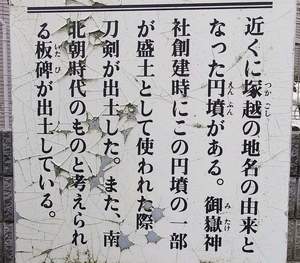 近くに塚越の地名の由来と
なった円墳がある。御嶽神
社創建時にこの円墳の一部
が盛土として使われた際
刀剣が出土した。また、南
北朝時代のものと考えられ
る板碑が出土している。